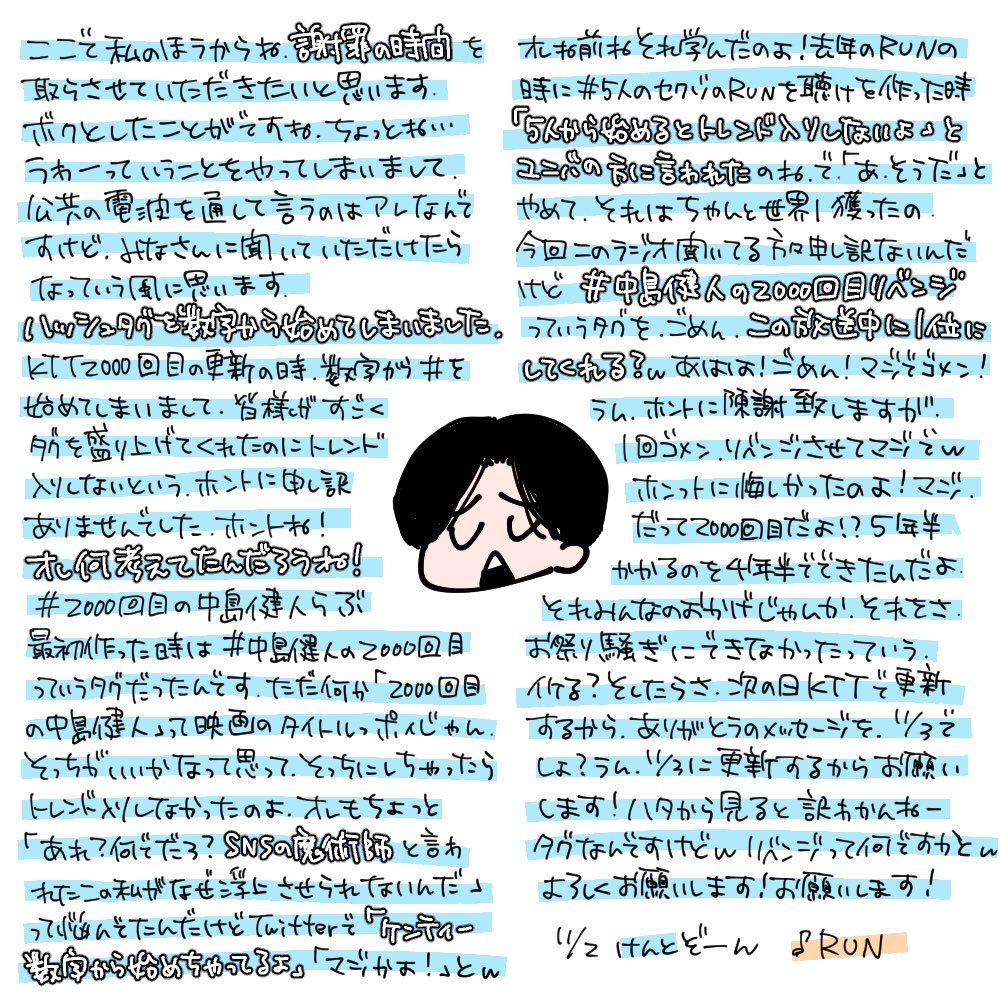 ここで私のほうからね、謝罪の時間を
取らさせていただきたいと思います.
ボクとしたことがですね、ちょっとね…
うわーっていうことをやってしまいまして.
公共の電波を通して言うのはアレなんで
すけど、みなさんに聞いていただけたら
なっていう風に思います.
ハッシュタグを数字から始めてしまいました。
KTT2000回目の更新の時、数字から#を
始めてしまいまして、皆様がすごく
タグを盛り上げてくれたのにトレンド
入りしないという、ホントに申し訳
ありませんでした、ホントね!
オレ何考えてたんだろうね!
#2000回目の中島健人らぶ
最初作った時は#中島健人の2000回目
っていうタグだったんです、ただ何か「2000回目
の中島健人」って映画のタイトルっポイじゃん.
そっちがいいかなって思って、そっちにしちゃったら
トレンド入りしなかったのよ、オレもちょっと
「あれ?何でだろ?SNSの魔術師と言わ
れたこの私がなぜ浮上させられないんだ」
って悩んでたんだけどTwitterで「ケンティー
数字から始めちゃってるよ」「マジかよ!」とw
オレね前ねそれ学んだのよ!去年のRUNの
時に#5人のセクゾのRUNを聴けを作った時
「5人から始めるとトレンド入りしないよ」と
ユニバの方に言われたのね、で、「あ、そうだ」と
やめて、それはちゃんと世界1獲ったの.
今回このラジオ聞いてる方々申し訳ないんだ
けど #中島健人の2000回目リベンジ
っていうタグを、ごめん、この放送中に1位に
してくれる?w あはは!ごめん!マジでゴメン!
うん、ホントに陳謝致しますが、
1回ゴメン、リベンジさせてマジでw
ホンットに悔しかったのよ!マジ、
だって2000回目だよ!?5年半
かかるのを4年半でできたんだよ.
それみんなのおかげじゃんか、それをさ、
お祭り騒ぎにできなかったっていう.
イケる?そしたらさ、次の日KTTで更新
するから、ありがとうのメッセージを、11/3で
しょ?うん、11/3に更新するからお願い
します!ハタから見ると訳わかんねー
タグなんですけどw リベンジって何ですかとw
よろしくお願いします!お願いします!
11/2 けんとぞーん ♪RUN